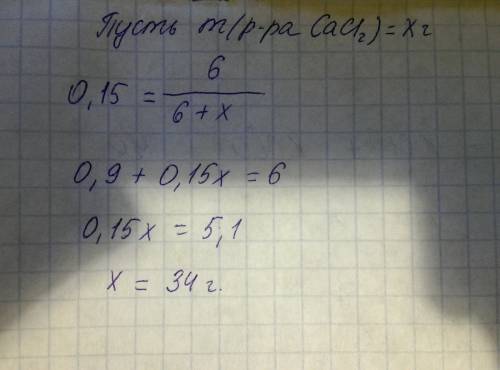 Пусть m(р-ра CaCl₂) = x г
0,15 = 6 / (6 + x)
0,9 + 0,15x = 6
0,15x = 5,1
x = 34 г.